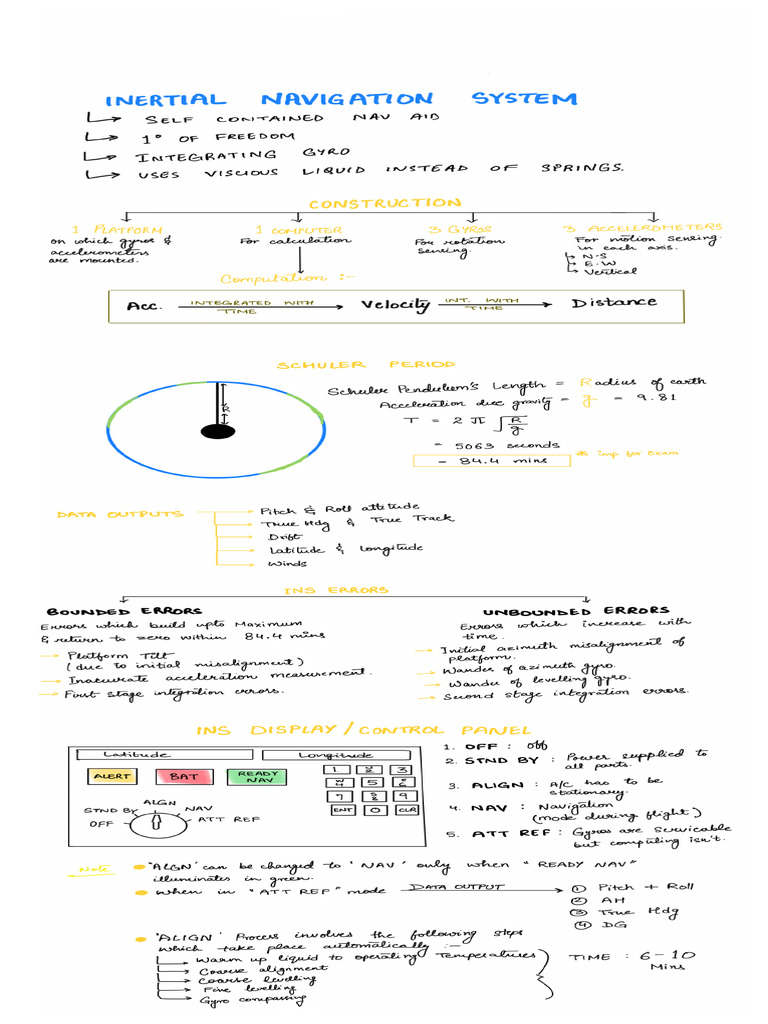 INERTIAL NAVIGATION SYSTEM
SELF CONTAINED NAV AID
1° OF FREEDOM
INTEGRATING GYRO
USES VISCIOUS LIQUID INSTEAD OF SPRINGS.
CONSTRUCTION
1 PLATFORM
on which gyros &
accelerometers
are mounted.
1 COMPUTER
For calculation
3 GYROS
For rotation
sensing.
3 ACCELEROMETERS
For motion sensing
in each axis.
N-S
E-W
Vertical
Computation :-
Acc. INTEGRATED WITH TIME Velocity INT. WITH TIME Distance
SCHULER PERIOD
R
Schuler Pendulum's Length = Radius of earth
Acceleration due gravity = g = 9.81
T = 2 π √R/g
= 5063 seconds
= 84.4 mins
* imp for exam
DATA OUTPUTS
Pitch & Roll attitude
True Hdg & True Track
Drift
Latitude & Longitude
Winds
INS ERRORS
BOUNDED ERRORS
Errors which build upto Maximum
& return to zero within 84.4 mins
Platform Tilt
(due to initial misalignment)
Inaccurate acceleration measurement.
First stage integration errors.
UNBOUNDED ERRORS
Errors which increase with
time.
Initial azimuth misalignment of
platform.
Wander of azimuth gyro.
Wander of levelling gyro.
Second stage integration errors.
INS DISPLAY/CONTROL PANEL
Latitude
Longitude
ALERT
BAT
READY
NAV
1 N2 3
W4 5 E6
7 S8 9
ENT 0 CLR
OFF
STND BY
ALGN
NAV
ATT REF
1. OFF : Off
2. STND BY : Power supplied to
all parts.
3. ALIGN : A/C has to be
stationary.
4. NAV : Navigation
(mode during flight)
5. ATT REF : Gyros are Servicable
but computing isn't.
Note
'ALGN' can be changed to 'NAV' only when "READY NAV"
illuminates in green.
When in "ATT REF" mode DATA OUTPUT
① Pitch + Roll
② AH
③ True Hdg
④ DG
'ALIGN' Process involves the following steps
which take place automatically :-
Warm up liquid to operating Temperatures
Coarse alignment
Coarse levelling
Fine levelling
Gyro compassing
TIME : 6-10
Mins